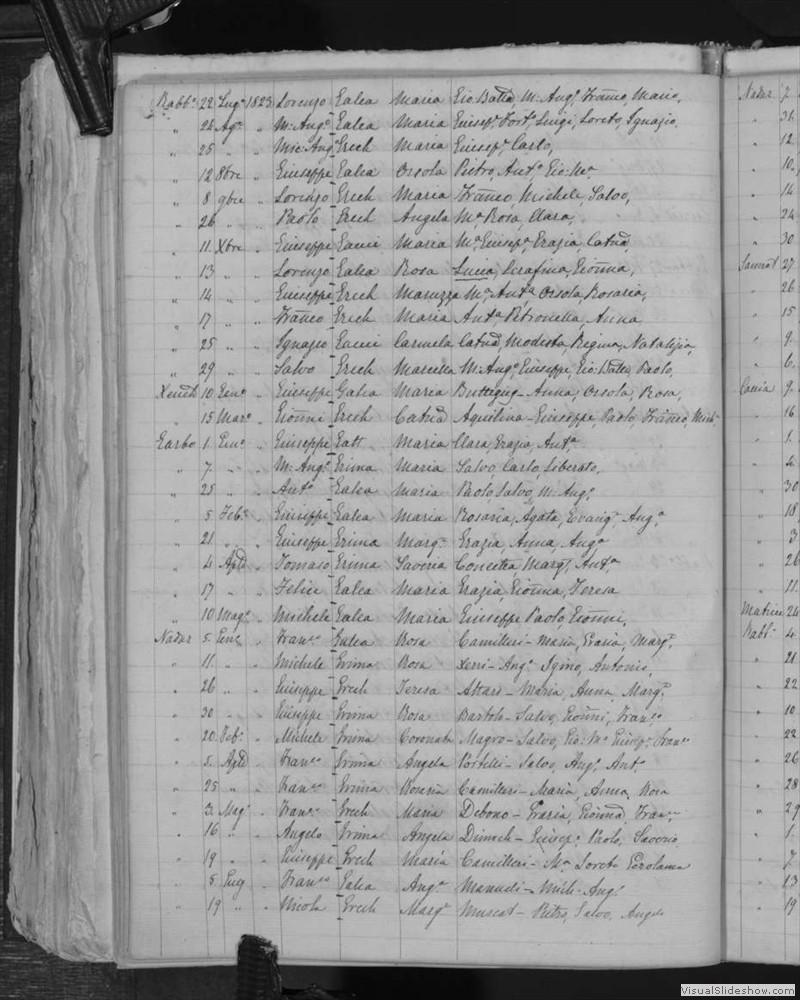 Rabbo 22 Lugo 1823 Lorenzo Galea Maria Gio: Batta, M: Ango, Franco, Mario,
" 28 Ago " M: Ango Galea Maria Giusepe Forto Luigi, Loreto, Ignazio.
" 25 " " Mic: Ango Grech Maria Giusepe Carlo,
" 12 8bre " Giuseppe Galea Orsola Pietro, Anto Gio: Ma
" 8 9bre " Lorenzo Grech Maria Franco, Michele, Salvo,
" 26 " " Paolo Grech Angela Ma Rosa, Clara,
" 11 Xbre " Giuseppe Gauci Maria Ma Giusepa, Grazia, Catna
" 13 " " Lorenzo Galea Rosa Lucia, Serafina, Gionna,
" 14 " " Giuseppe Grech Maruzza Ma Anta Orsola, Rosaria,
" 17 " " Franco Grech Maria Anta Petronella, Anna
" 25 " " Ignazio Gauci Carmela Catna, Modesta, Regina, Natalizia,
" 29 " " Salvo Grech Marcella M: Ango Giuseppe, Gio: Batta, Paolo,
10 Geno " Giuseppe Galea Maria Buttigieg - Anna, Orsola, Rosa,
" 15 Maro " Gionni Grech Catna Aquilina - Giuseppe, Paolo, Franco, Mich:
Garbo 1 Geno " Giuseppe Gatt Maria Clara, Grazia, Anta
" 7 " " M: Ango Grima Maria Salvo Carlo, Liberato,
" 25 " " Anto Galea Maria Paolo Salvo, M: Ango
" 5 Febo " Giuseppe Galea Maria Rosaria, Agata, Evanga Anga
" 21 " " Giuseppe Grima Marga Grazia, Anna, Anga
" 4 Aple " Tomaso Grima Saveria Concetta Marga, Anta
" 17 " " Felice Galea Maria Grazia, Gionna, Teresa
" 10 Mago " Michele Galea Maria Giuseppe Paolo, Gionni,
Nadur 5 Geno " Franco Galea Rosa Camilleri - Maria, Grazia, Marga
" 11 " " Michele Grima Rosa Xerri - Ango Igino, Antonio,
" 26 " " Giuseppe Grech Teresa Attard - Maria, Anna Marga
" 30 " " Giuseppe Grima Rosa Bartolo - Salvo, Gionni, Franco
" 20 Febo " Michele Grima Coronata Magro - Salvo, Gio: Ma Giusepe, Franco
" 5 Aple " Franco Grima Angela Portelli - Salvo, Ango Anto
" 25 " " Franco Grima Rosaria Camilleri - Maria, Anna, Rosa
" 3 Mago " Franco Grech Maria Debono - Grazia, Gionna, Franca
" 16 " " Angelo Grima Angela Dimech - Giusepe Paolo, Saverio
" 19 " " Giuseppe Grech Maria Camilleri - Ma Loreta Gerolama
" 5 Giug " Franco Galea Anga - Mich: Ango
" 19 " " Nicola Grech Marga Muscat - Pietro, Salvo, Angelo
Nadur 7
" 31
" 12
" 10
" 14
" 24
" 30
Sannat 27
" 26
" 15
" 9
" 6
9
" 16
" 1
" 4
" 30
" 18
" 3
" 26
" 11
Matrice 24
Rabbo 4
" 21
" 22
" 10
" 22
" 26
" 28
" 29
" 1
" 7
" 13
" 19
VisualSlideshow.com